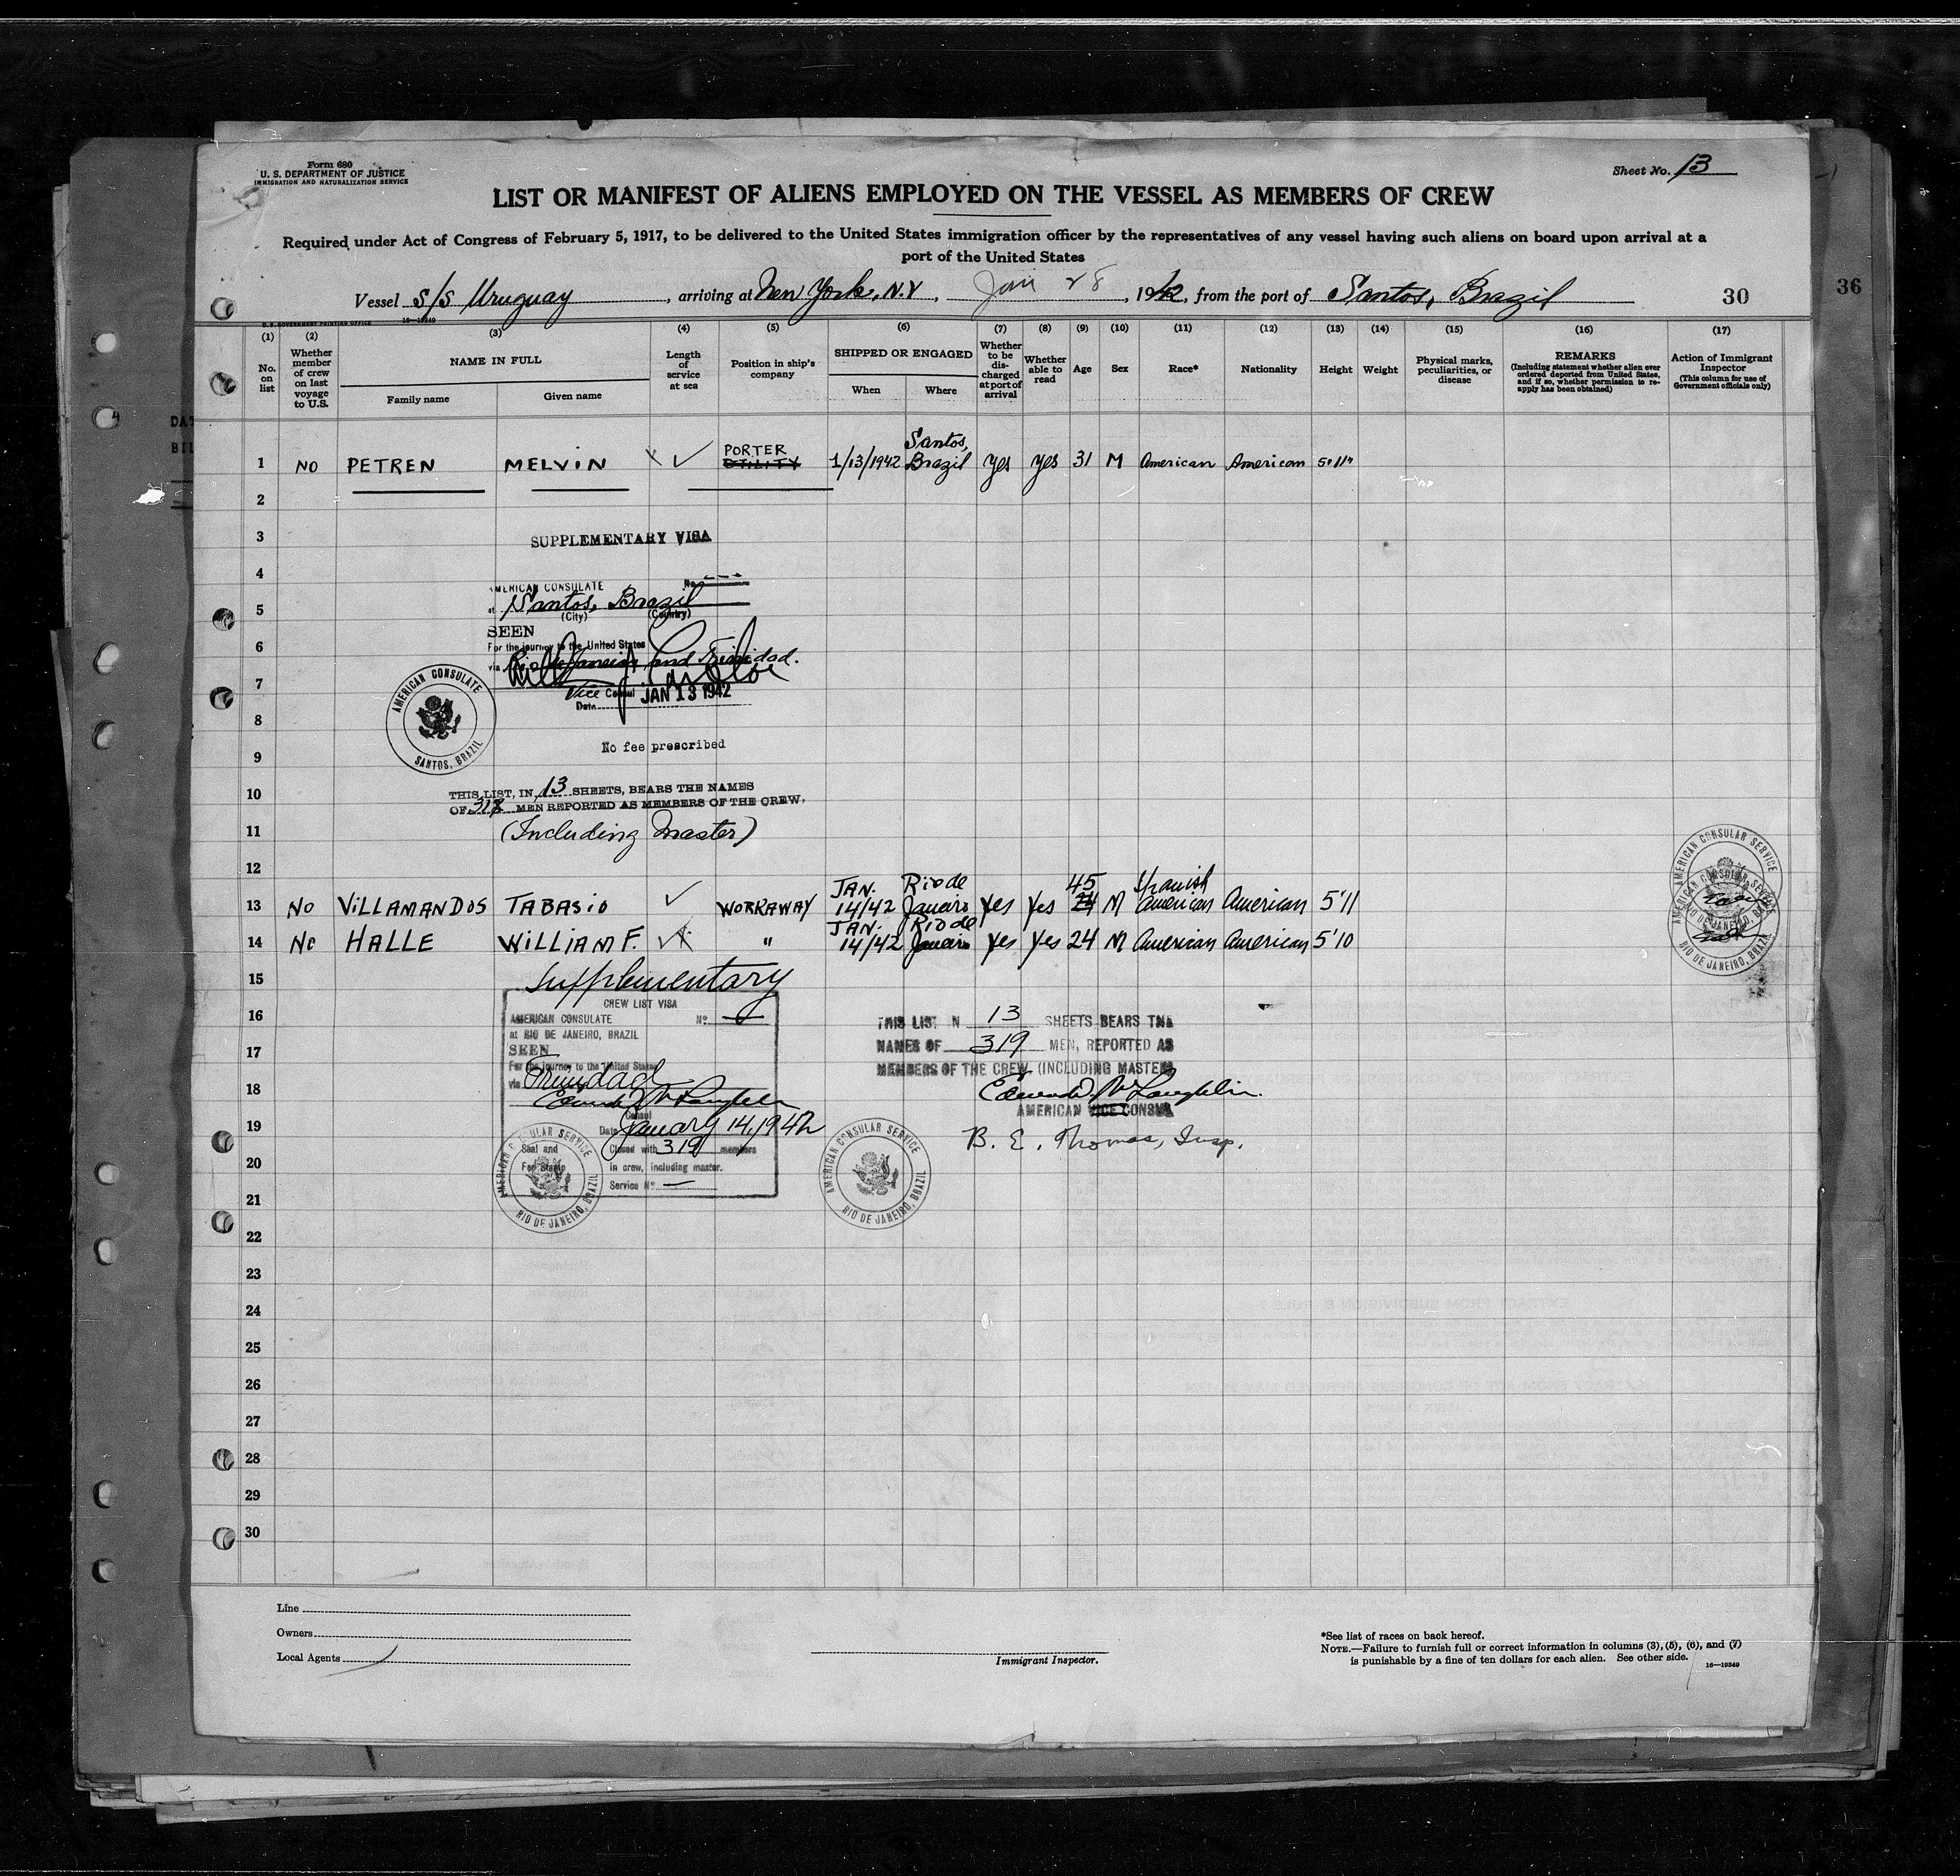 Form 680
U. S. DEPARTMENT OF JUSTICE
IMMIGRATION AND NATURALIZATION SERVICE
Sheet No. 13
LIST OR MANIFEST OF ALIENS EMPLOYED ON THE VESSEL AS MEMBERS OF CREW
Required under Act of Congress of February 5, 1917, to be delivered to the United States immigration officer by the representatives of any vessel having such aliens on board upon arrival at a
port of the United States
Vessel S/S Uruguay, arriving at New York, N.Y, Jan 28, 1942, from the port of Santos, Brazil 30
36
U.S. GOVERNMENT PRINTING OFFICE 16—19349
(1) (2) (3) (4) (5) (6) (7) (8) (9) (10) (11) (12) (13) (14) (15) (16) (17)
No. on list
Whether member of crew on last voyage to U.S.
NAME IN FULL
Family name
Given name
Length of service at sea
Position in ship's company
SHIPPED OR ENGAGED
When
Where
Whether to be discharged at port of arrival
Whether able to read
Age
Sex
Race*
Nationality
Height
Weight
Physical marks, peculiarities, or disease
REMARKS
(Including statement whether alien ever ordered deported from United States, and if so, whether permission to reapply has been obtained)
Action of Immigrant Inspector
(This column for use of Government officials only)
1 NO PETREN MELVIN PORTER UTILITY 1/13/1942 Santos, Brazil yes yes 31 M American American 5'11"
2
3 SUPPLEMENTARY VISA
4
AMERICAN CONSULATE No.
5 at Santos, Brazil
(City) (Country)
SEEN
6 For the journey to the United States
via Rio de Janeiro and Trinidad.
7
Vice Consul
Date JAN 13 1942
AMERICAN CONSULATE SANTOS, BRAZIL
8
9 No fee prescribed
10 THIS LIST, IN 13 SHEETS, BEARS THE NAMES
OF 317 MEN REPORTED AS MEMBERS OF THE CREW.
11 (Including Master)
12
13 NO VILLAMANDOS TABASIO WORKAWAY JAN. 14/42 Rio de Janeiro yes yes 45 24 M Spanish American American 5'11
14 No HALLE WILLIAM F. " JAN. 14/42 Rio de Janeiro yes yes 24 M American American 5'10
AMERICAN CONSULAR SERVICE
RIO DE JANEIRO, BRAZIL
15 Supplementary
CREW LIST VISA
16 AMERICAN CONSULATE No.
at RIO DE JANEIRO, BRAZIL
17 SEEN
For the journey to the United States
18 via Trinidad
Edward D. McLaughlin
Consul
19 Date January 14, 1942
Seal and Fee Stamp
20 Closed with 319 members
in crew, including master.
21 Service No. —
AMERICAN CONSULAR SERVICE
RIO DE JANEIRO, BRAZIL
THIS LIST IN 13 SHEETS BEARS THE
NAMES OF 319 MEN, REPORTED AS
MEMBERS OF THE CREW (INCLUDING MASTER)
Edward D. McLaughlin.
AMERICAN VICE CONSUL
B. E. Thomas, Insp.
AMERICAN CONSULAR SERVICE
RIO DE JANEIRO, BRAZIL
22
23
24
25
26
27
28
29
30
Line
Owners
Local Agents
Immigrant Inspector.
*See list of races on back hereof.
NOTE.—Failure to furnish full or correct information in columns (3), (5), (6), and (7)
is punishable by a fine of ten dollars for each alien. See other side.
16—19349